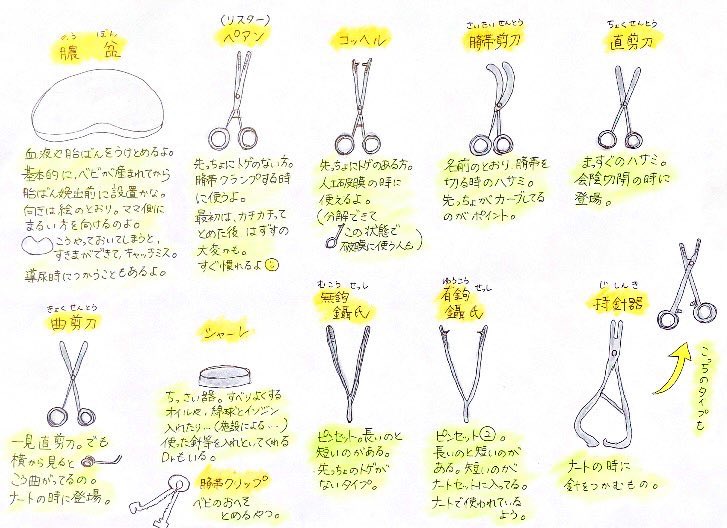 のう ぼん
膿 盆
血液や胎ばんをうけとめるよ。
基本的に、ベビが産まれてから
胎ばん娩出前に設置かな。
向きは絵のとおり。ママ側に
まるい方を向けるのよ。
こうやっておいてしまうと、
すきまができて、キャッチミス。
導尿時につかうこともあるよ。
(リスター)
ペアン
先っちょにトゲのない方。
臍帯クランプする時
に使うよ。
最初は、カチカチって
とめた後 はずすの
大変かも。
すぐ慣れるよ
コッヘル
先っちょにトゲのある方。
人工破膜の時に
使えるよ。
(分解できて
この状態で
破膜に使う人も)
さいたいせんとう
臍帯剪刀
名前のとおり、臍帯を
切る時のハサミ。
先っちょがカーブしてる
のがポイント。
ちょくせんとう
直剪刀
まっすぐのハサミ。
会陰切開の時に
登場。
きょくせんとう
曲剪刀
一見直剪刀。でも
横から見ると
こう曲がってるの。
ナートの時に登場。
シャーレ
ちっさい器。すべりよくする
オイルや、綿球とイソジン
入れたり…(施設による…)
使った針等を入れといてくれる
Drもいる。
臍帯クリップ
ベビのおへそ
とめるやつ。
むこう せっし
無鉤
鑷氏
ピンセット。長いのと
短いのがある。
先っちょのトゲが
ないタイプ。
ゆうこう せっし
有鉤
鑷氏
ピンセット②。
長いのと短いのが
ある。短いのが
ナートセットに入ってる。
ナートで使われている
よう。
じしんき
持針器
ナートの時に
針をつかむもの。
こっちのタイプも